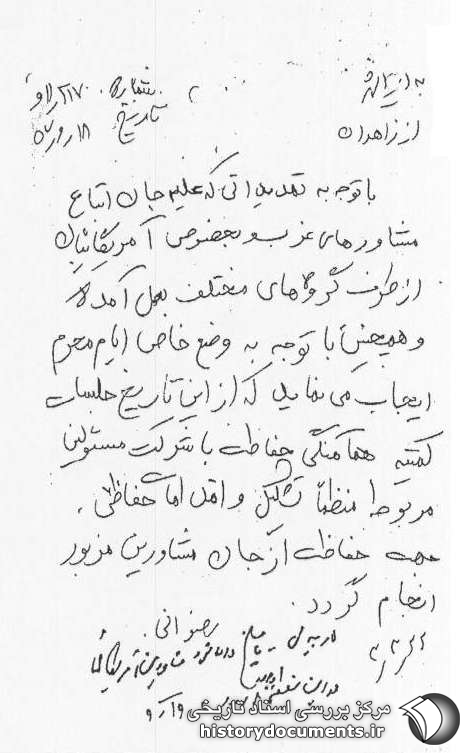 به اداره
شماره
از زاهدان
تاریخ
با توجه به تهدیداتی که علیه جان اتباع
مشاورهای غرب و بخصوص آمریکائیان
از طرف گروههای مختلف بعمل آمده
و همچنین با توجه به وضع خاص ایام محرم
ایجاب می نماید که از این تاریخ جلسات
کمیته هماهنگی حفاظت با شرکت مسئولین
مربوط منظماً تشکیل و اقدامات حفاظتی
جهت حفاظت از جان مشاورین مزبور
انجام گردد.
رضوانی.
مرکز بررسی اسناد تاریخی
historydocuments.ir